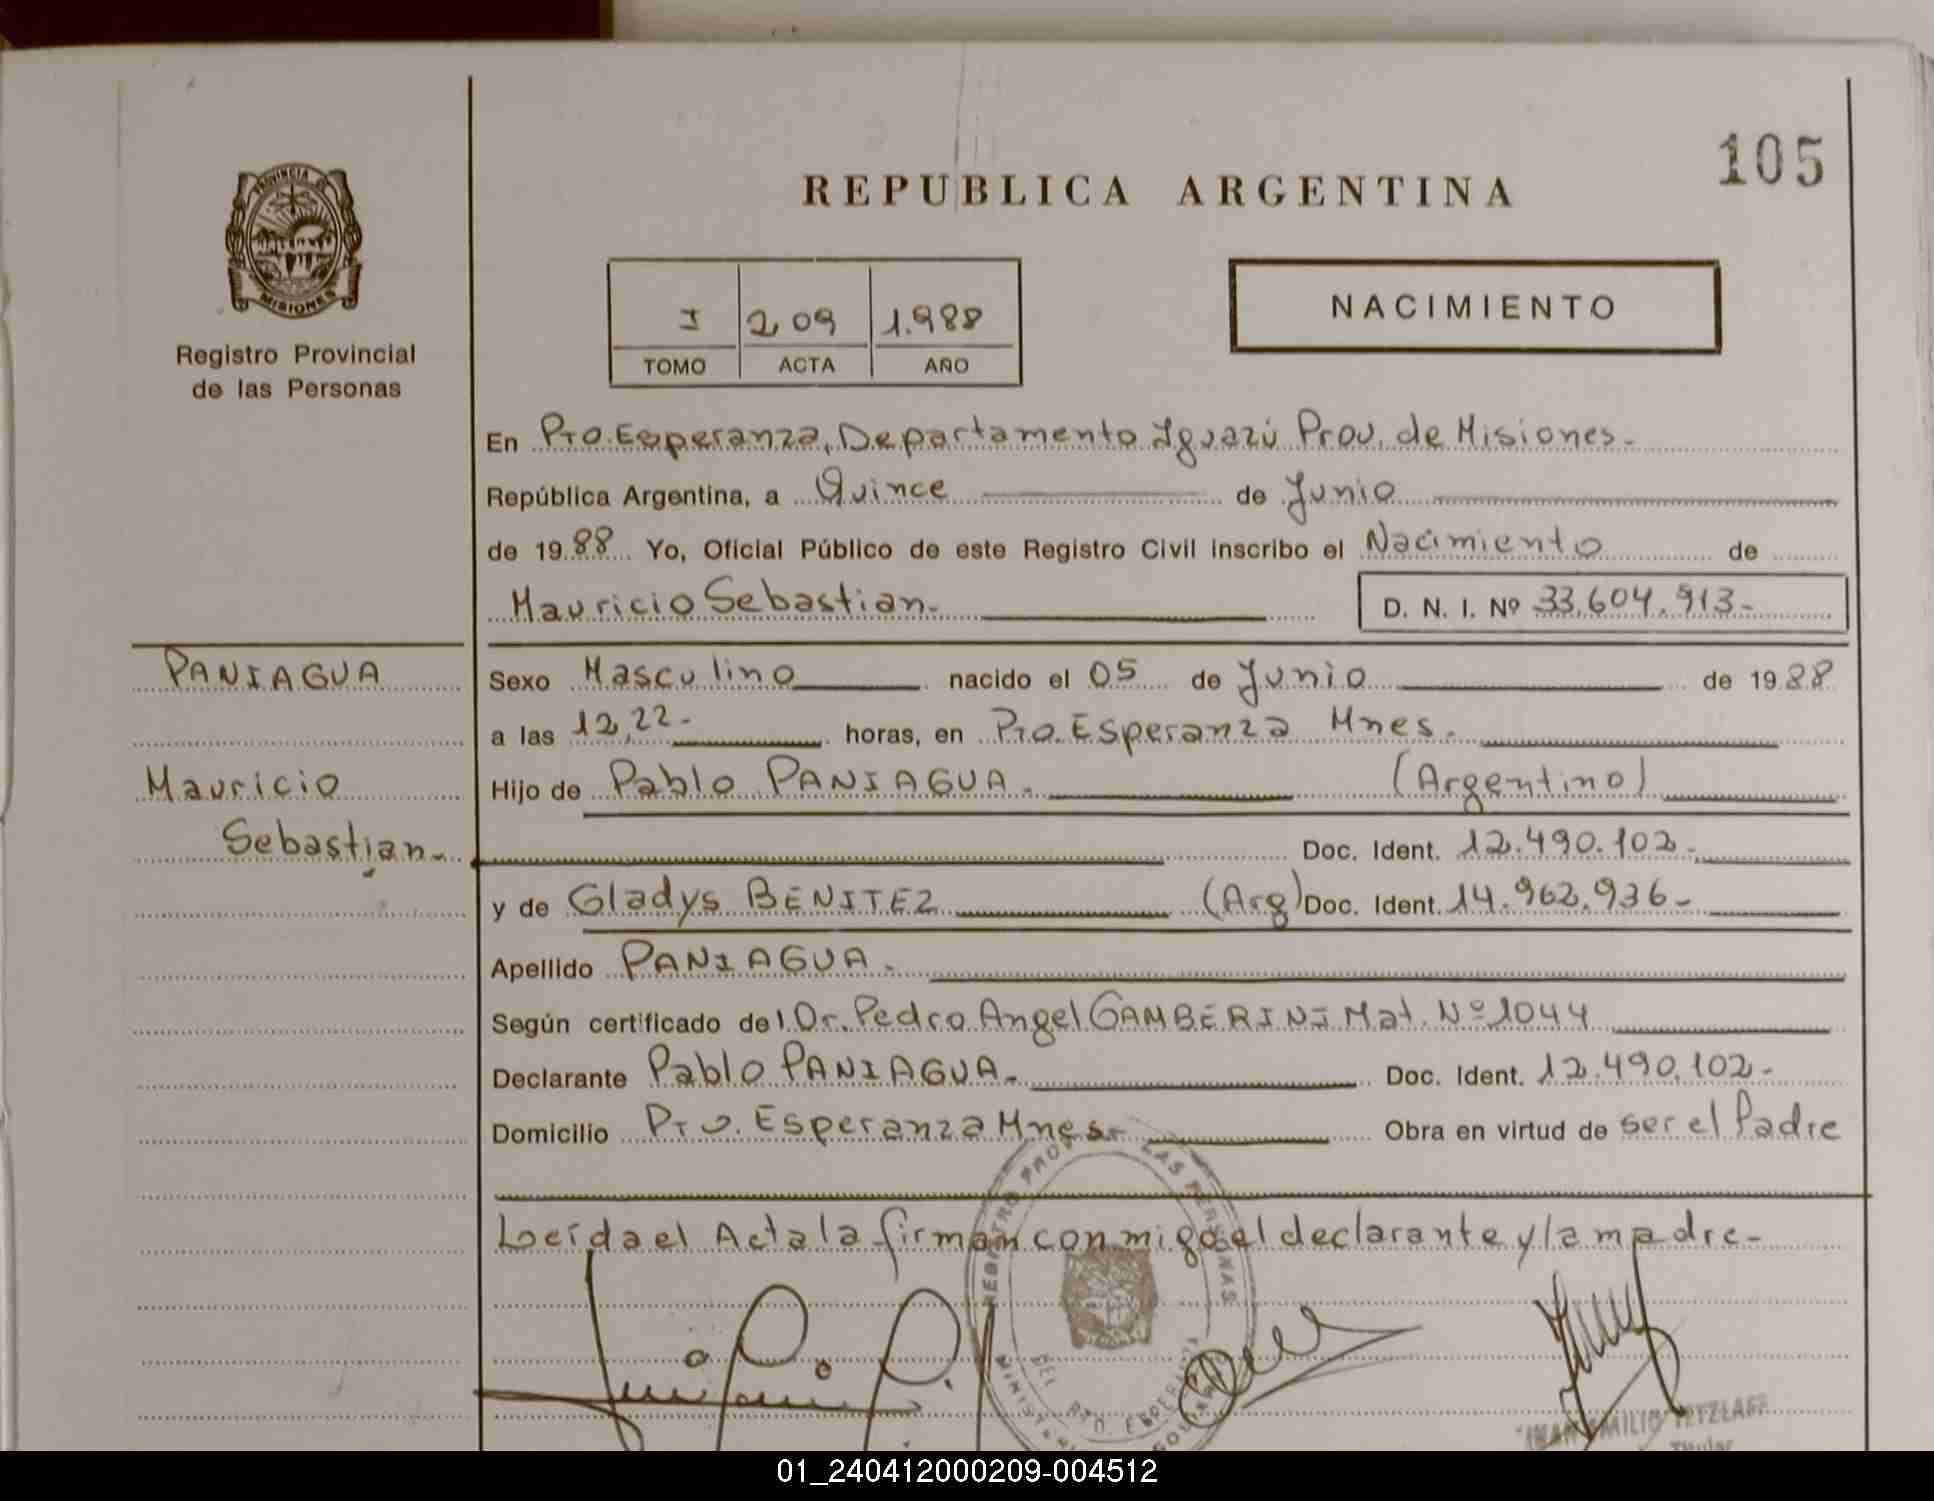 105
REPUBLICA ARGENTINA
PROVINCIA DE
MISIONES
Registro Provincial
de las Personas
I 209 1.988
TOMO ACTA AÑO
NACIMIENTO
En Pto. Esperanza, Departamento Iguazú Prov. de Misiones.-
República Argentina, a Quince de Junio
de 1988 Yo, Oficial Público de este Registro Civil inscribo el Nacimiento de
Mauricio Sebastian.- D. N. I. Nº 33.604.913-
PANIAGUA
Mauricio
Sebastian.-
Sexo Masculino nacido el 05 de Junio de 1988
a las 12,22- horas, en Pto. Esperanza Mnes.
Hijo de Pablo PANIAGUA. (Argentino)
Doc. Ident. 12.490.102-
y de Gladys BENITEZ (Arg) Doc. Ident. 14.962.936-
Apellido PANIAGUA.
Según certificado del Dr. Pedro Angel GAMBERINI Mat. Nº 1044
Declarante Pablo PANIAGUA.- Doc. Ident. 12.490.102-
Domicilio Pto. Esperanza Mnes.- Obra en virtud de ser el Padre
Leída el Acta la firman conmigo el declarante y la madre-
01_240412000209-004512